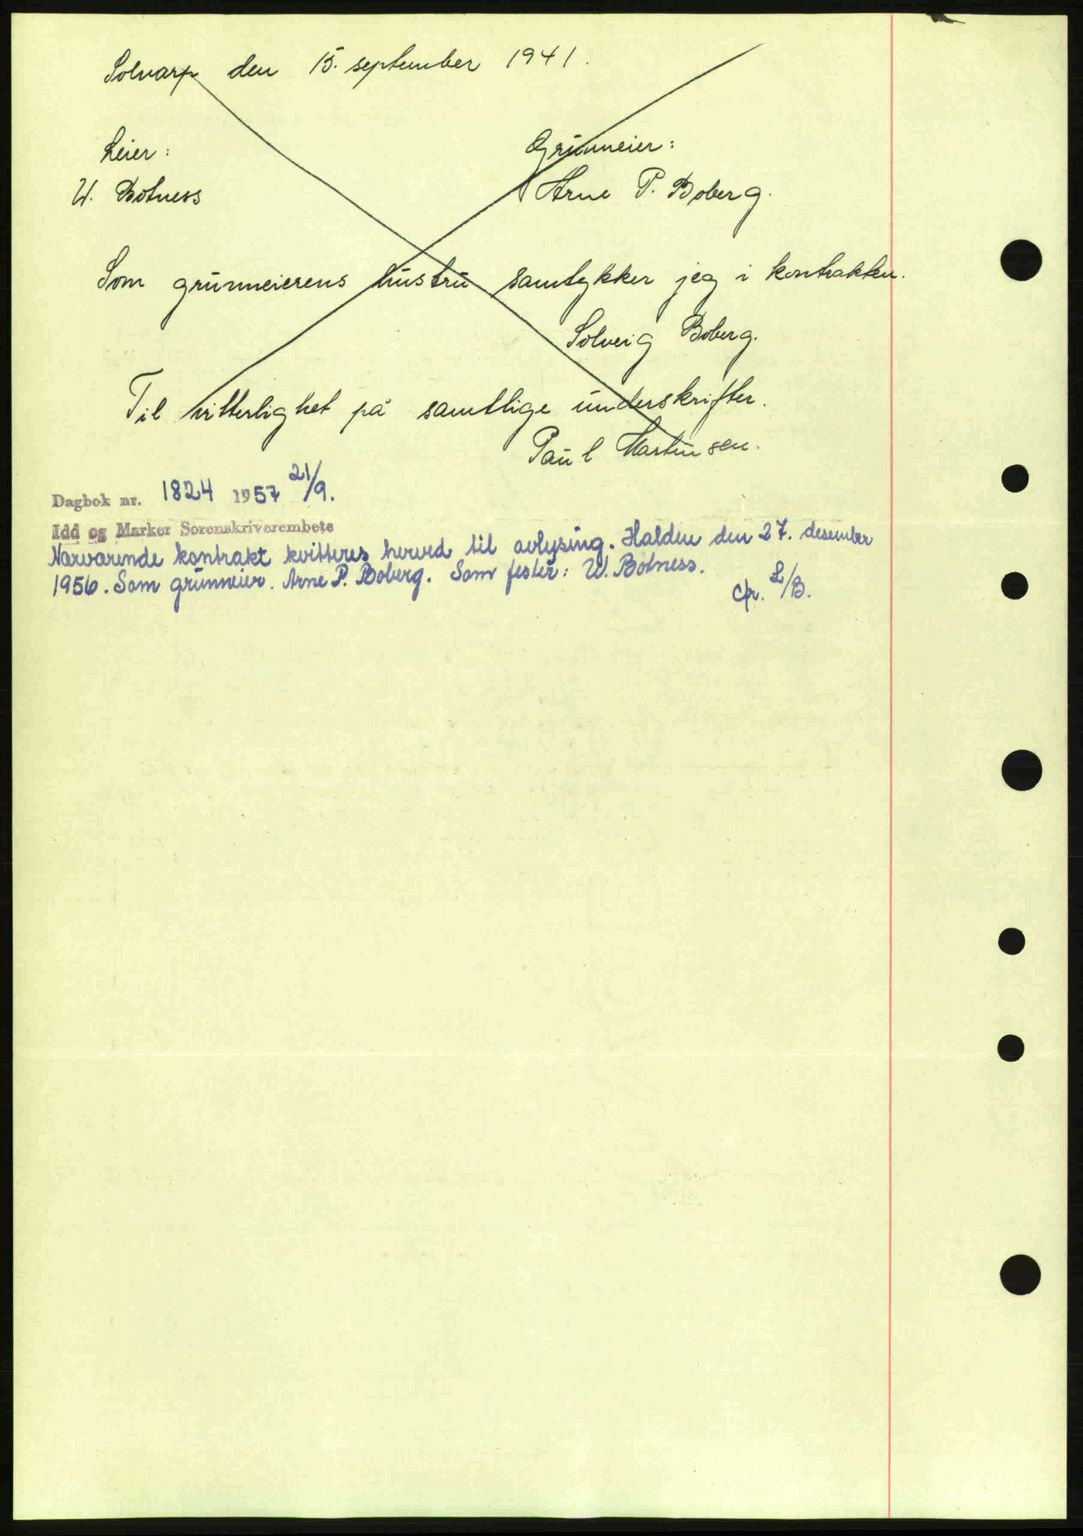 Solvarp den 15. september 1941.
Leier: Grunneier:
W. Botness Arne P. Boberg.
Som grunneierens hustru samtykker jeg i kontrakten.
Solveig Boberg.
Til vitterlighet på samtlige underskrifter.
Paul Martinsen.
Dagbok nr. 1824 1957 21/9.
Idd og Marker Sorenskriverembete
Nærværende kontrakt kvitteres herved til avlysing. Halden den 27. desember
1956. Som grunneier. Arne P. Boberg. Som fester: W. Botness.
cfr. L/B.